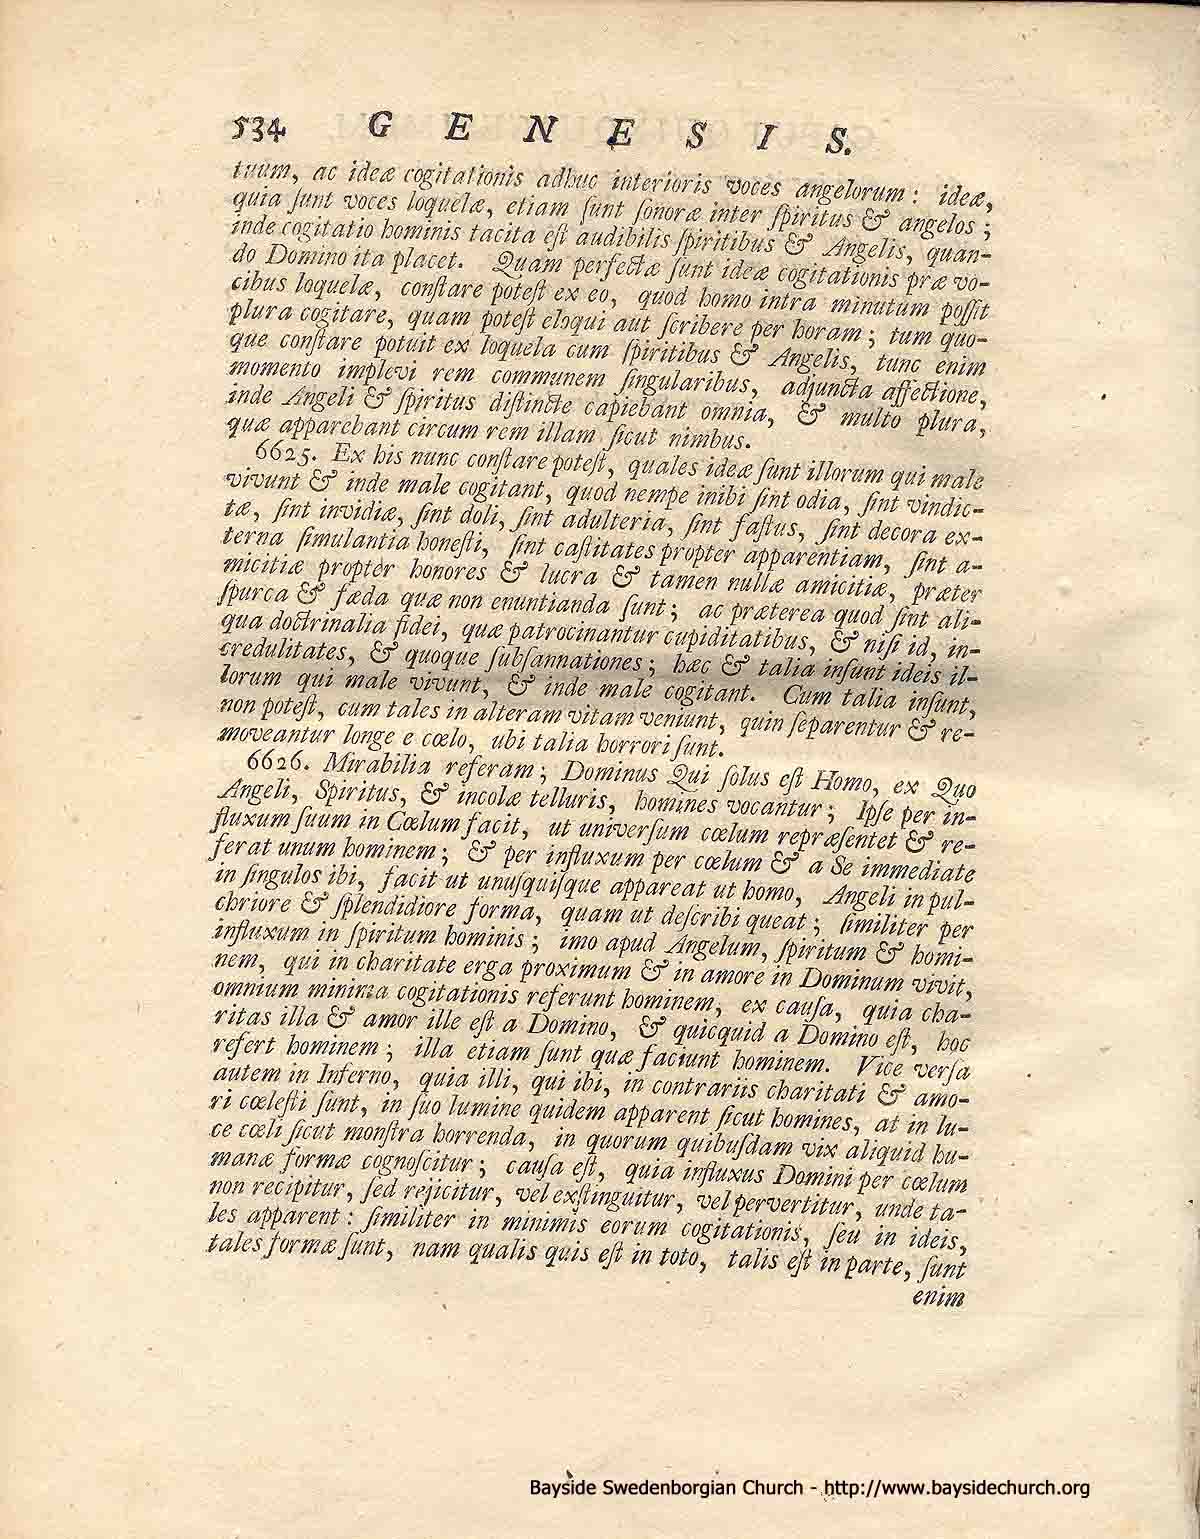 534 GENESIS.
tuum, ac ideæ cogitationis adhuc interioris voces angelorum: ideæ,
quia ſunt voces loquelæ, etiam ſunt ſonoræ inter ſpiritus & angelos;
inde cogitatio hominis tacita eſt audibilis ſpiritibus & Angelis, quan-
do Domino ita placet. Quam perfectæ ſunt ideæ cogitationis præ vo-
cibus loquelæ, conſtare poteſt ex eo, quod homo intra minutum poſſit
plura cogitare, quam poteſt eloqui aut ſcribere per horam; tum quo-
que conſtare potuit ex loquela cum ſpiritibus & Angelis, tunc enim
momento implevi rem communem ſingularibus, adjuncta affectione,
inde Angeli & ſpiritus diſtincte capiebant omnia, & multo plura,
quæ apparebant circum rem illam ſicut nimbus.
6625. Ex his nunc conſtare poteſt, quales ideæ ſunt illorum qui male
vivunt & inde male cogitant, quod nempe inibi ſint odia, ſint vindic-
tæ, ſint invidiæ, ſint doli, ſint adulteria, ſint faſtus, ſint decora ex-
terna ſimulantia honeſti, ſint caſtitates propter apparentiam, ſint a-
micitiæ propter honores & lucra & tamen nullæ amicitiæ, præter
ſpurca & fæda quæ non enuntianda ſunt; ac præterea quod ſint ali-
qua doctrinalia fidei, quæ patrocinantur cupiditatibus, & niſi id, in-
credulitates, & quoque ſubſannationes; hæc & talia inſunt ideis il-
lorum qui male vivunt, & inde male cogitant. Cum talia inſunt,
non poteſt, cum tales in alteram vitam veniunt, quin ſeparentur & re-
moveantur longe e cœlo, ubi talia horrori ſunt.
6626. Mirabilia referam; Dominus Qui ſolus eſt Homo, ex Quo
Angeli, Spiritus, & incolæ telluris, homines vocantur; Ipſe per in-
fluxum ſuum in Cœlum facit, ut univerſum cœlum repræſentet & re-
ferat unum hominem; & per influxum per cœlum & a Se immediate
in ſingulos ibi, facit ut unuſquiſque appareat ut homo, Angeli in pul-
chriore & ſplendidiore forma, quam ut deſcribi queat; ſimiliter per
influxum in ſpiritum hominis; imo apud Angelum, ſpiritum & homi-
nem, qui in charitate erga proximum & in amore in Dominum vivit,
omnium minima cogitationis referunt hominem, ex cauſa, quia cha-
ritas illa & amor ille eſt a Domino, & quicquid a Domino eſt, hoc
refert hominem; illa etiam ſunt quæ faciunt hominem. Vice verſa
autem in Inferno, quia illi, qui ibi, in contrariis charitati & amo-
ri cœleſti ſunt, in ſuo lumine quidem apparent ſicut homines, at in lu-
ce cœli ſicut monſtra horrenda, in quorum quibuſdam vix aliquid hu-
manæ formæ cognoſcitur; cauſa eſt, quia influxus Domini per cœlum
non recipitur, ſed rejicitur, vel exſtinguitur, vel pervertitur, unde ta-
les apparent: ſimiliter in minimis eorum cogitationis, ſeu in ideis,
tales formæ ſunt, nam qualis quis eſt in toto, talis eſt in parte, ſunt
enim
Bayside Swedenborgian Church - http://www.baysidechurch.org